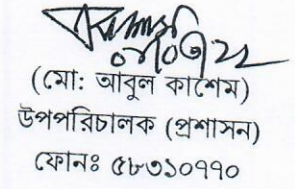 (মো: আবুল কাশেম)
উপপরিচালক (প্রশাসন)
ফোনঃ ৫৮৩১০৭৭০